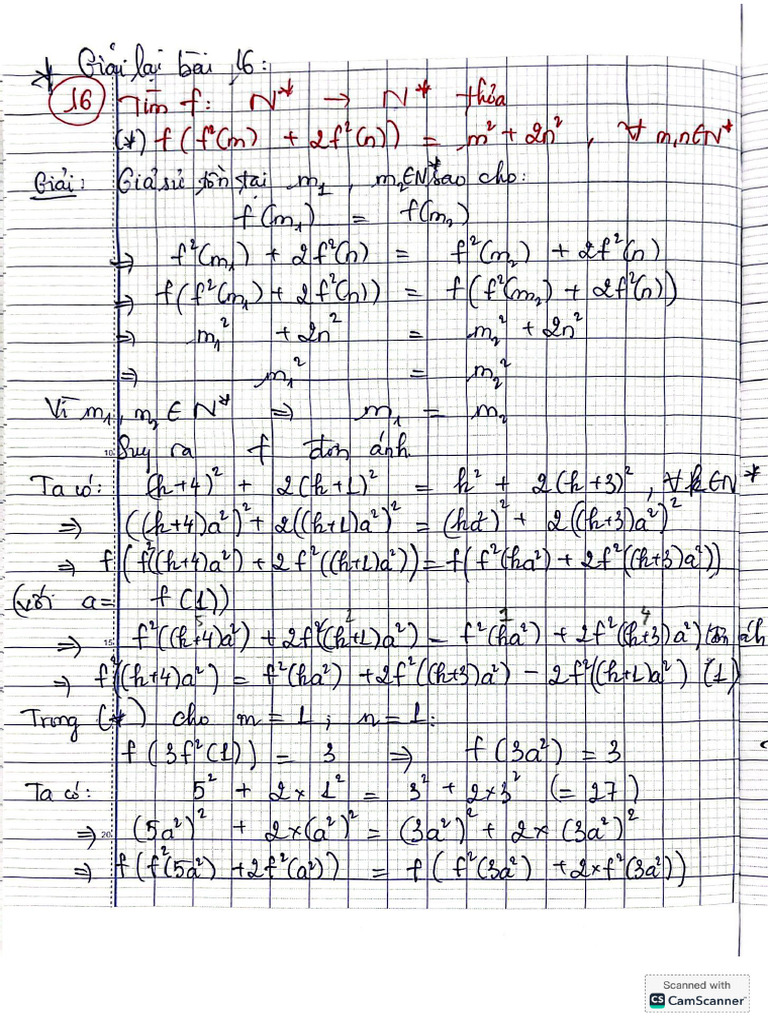 * Giải lại bài 16:
16 Tìm f: N* → N* thỏa
(*) f(f²(m) + 2f²(n)) = m² + 2n², ∀ m,n∈N*
Giải: Giả sử tồn tại m₁, m₂∈N* sao cho:
f(m₁) = f(m₂)
⇒ f²(m₁) + 2f²(n) = f²(m₂) + 2f²(n)
⇒ f(f²(m₁) + 2f²(n)) = f(f²(m₂) + 2f²(n))
⇒ m₁² + 2n² = m₂² + 2n²
⇒ m₁² = m₂²
Vì m₁, m₂ ∈ N* ⇒ m₁ = m₂
Suy ra f đơn ánh.
Ta có: (h+4)² + 2(h+1)² = h² + 2(h+3)², ∀h∈N*
⇒ ((h+4)a²)² + 2((h+1)a²)² = (ha²)² + 2((h+3)a²)²
⇒ f(f²((h+4)a²) + 2f²((h+1)a²)) = f(f²(ha²) + 2f²((h+3)a²))
(với a = f(1))
⇒ f²((h+4)a²) + 2f²((h+1)a²) = f²(ha²) + 2f²((h+3)a²) (đơn ánh
⇒ f²((h+4)a²) = f²(ha²) + 2f²((h+3)a²) - 2f²((h+1)a²) (1)
Trong (*) cho m = 1; n = 1:
f(3f²(1)) = 3 ⇒ f(3a²) = 3
Ta có: 5² + 2×1² = 3² + 2×3² (= 27)
⇒ (5a²)² + 2×(a²)² = (3a²)² + 2×(3a²)²
⇒ f(f²(5a²) + 2f²(a²)) = f(f²(3a²) + 2×f²(3a²))
Scanned with
CS CamScanner